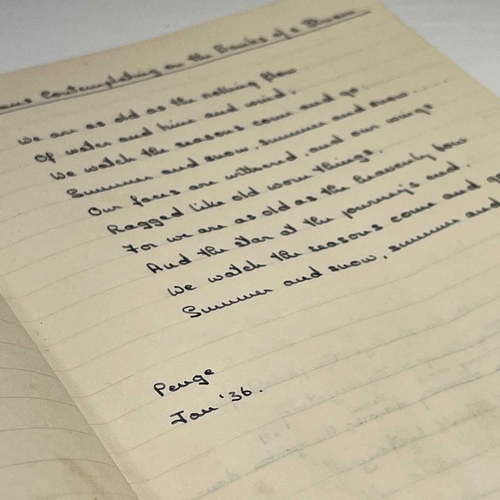 Contemplating on the Banks of a Stream
We are as old as the rolling flow
Of water and time and wind.
We watch the seasons come and go
Summer and snow, summer and snow....
Our faces are withered, and our wings
Ragged like old worn things.
For we are as old as the heavenly bow
And the star at the journey's end.
We watch the seasons come and go
Summer and snow, summer and
Penge
Jan '36.